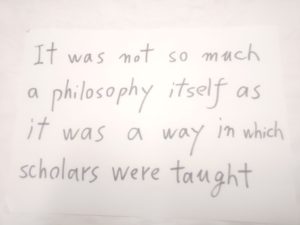 It was not so much
a philosophy itself as
it was a way in which
scholars were taught